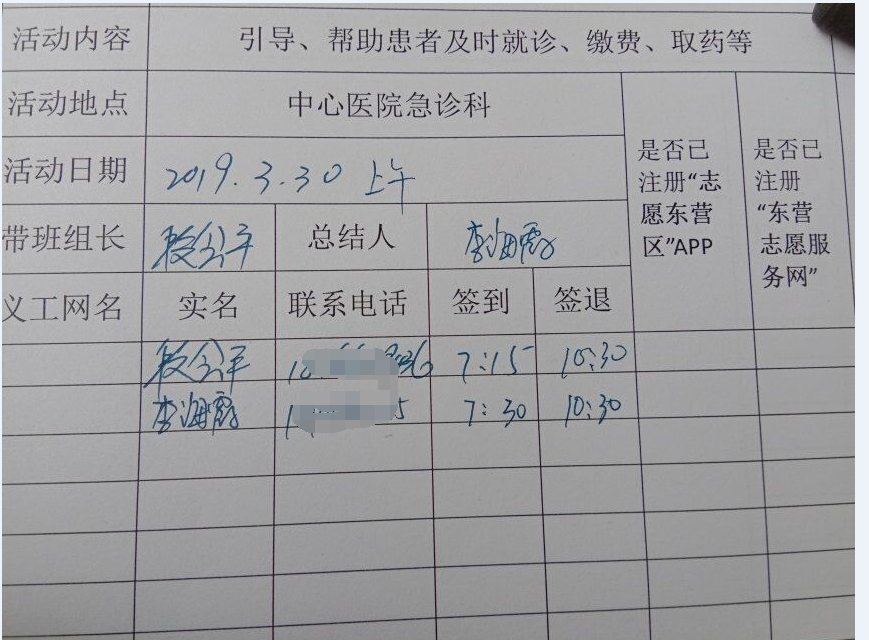 活动内容 引导、帮助患者及时就诊、缴费、取药等
活动地点 中心医院急诊科
活动日期 2019.3.30 上午
是否已注册“志愿东营区”APP
是否已注册“东营志愿服务网”
带班组长 总结人 李海霞
义工网名 实名 联系电话 签到 签退
7:15 10:30
李海霞 7:30 10:30